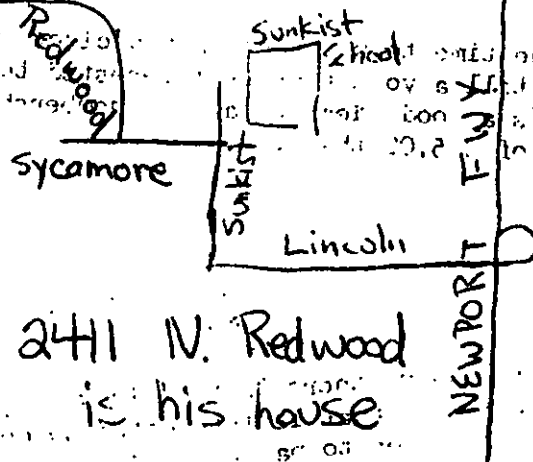 Redwood
Sunkist
School
Sycamore
Sunkist
Lincoln
NEWPORT FWY
2411 N. Redwood
is his house